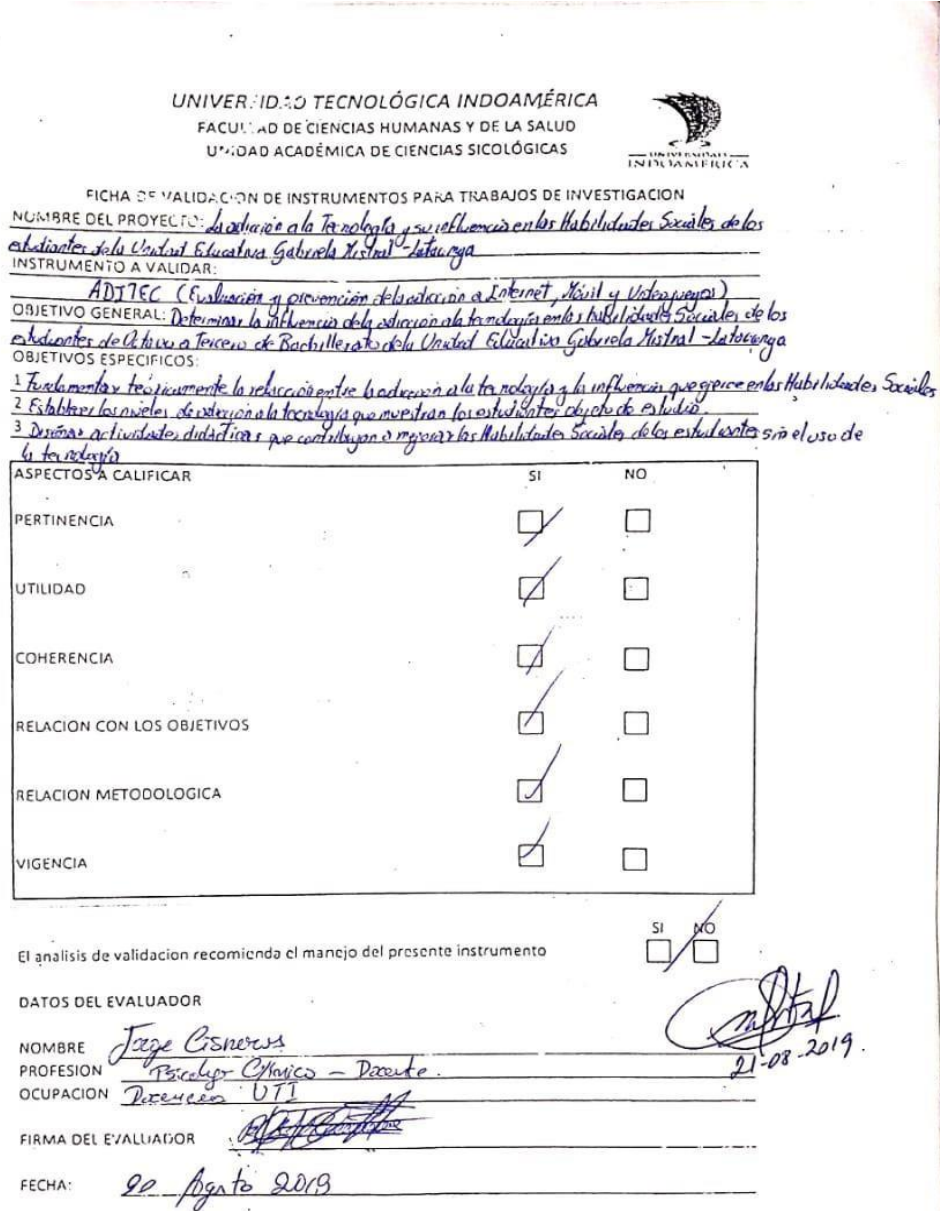 UNIVERSIDAD TECNOLÓGICA INDOAMÉRICA
FACULTAD DE CIENCIAS HUMANAS Y DE LA SALUD
UNIDAD ACADÉMICA DE CIENCIAS SICOLÓGICAS
UNIVERSIDAD
INDOAMERICA
FICHA DE VALIDACION DE INSTRUMENTOS PARA TRABAJOS DE INVESTIGACION
NOMBRE DEL PROYECTO: La adicción a la Tecnología y su influencia en las Habilidades Sociales de los
estudiantes de la Unidad Educativa Gabriela Mistral - Latacunga
INSTRUMENTO A VALIDAR:
ADITEC (Evaluación y prevención de la adicción a Internet, Móvil y Videojuegos)
OBJETIVO GENERAL: Determinar la influencia de la adicción a la tecnología en las habilidades Sociales de los
estudiantes de Octavo a Tercero de Bachillerato de la Unidad Educativa Gabriela Mistral - Latacunga
OBJETIVOS ESPECIFICOS:
1 Fundamentar teóricamente la relacción entre la adicción a la tecnología y la influencia que ejerce en las Habilidades Sociales
2 Establecer los niveles de adicción a la tecnología que muestran los estudiantes objeto de estudio.
3 Diseñar actividades didácticas que contribuyan a mejorar las Habilidades Sociales de los estudiantes sin el uso de
la tecnología
ASPECTOS A CALIFICAR SI NO
PERTINENCIA
UTILIDAD
COHERENCIA
RELACION CON LOS OBJETIVOS
RELACION METODOLOGICA
VIGENCIA
SI NO
El analisis de validacion recomienda el manejo del presente instrumento
DATOS DEL EVALUADOR
NOMBRE Jorge Cisneros
21-08-2019.
PROFESION Psicólogo Clínico - Docente.
OCUPACION UTI
FIRMA DEL EVALUADOR
FECHA: 20 Agosto 2019